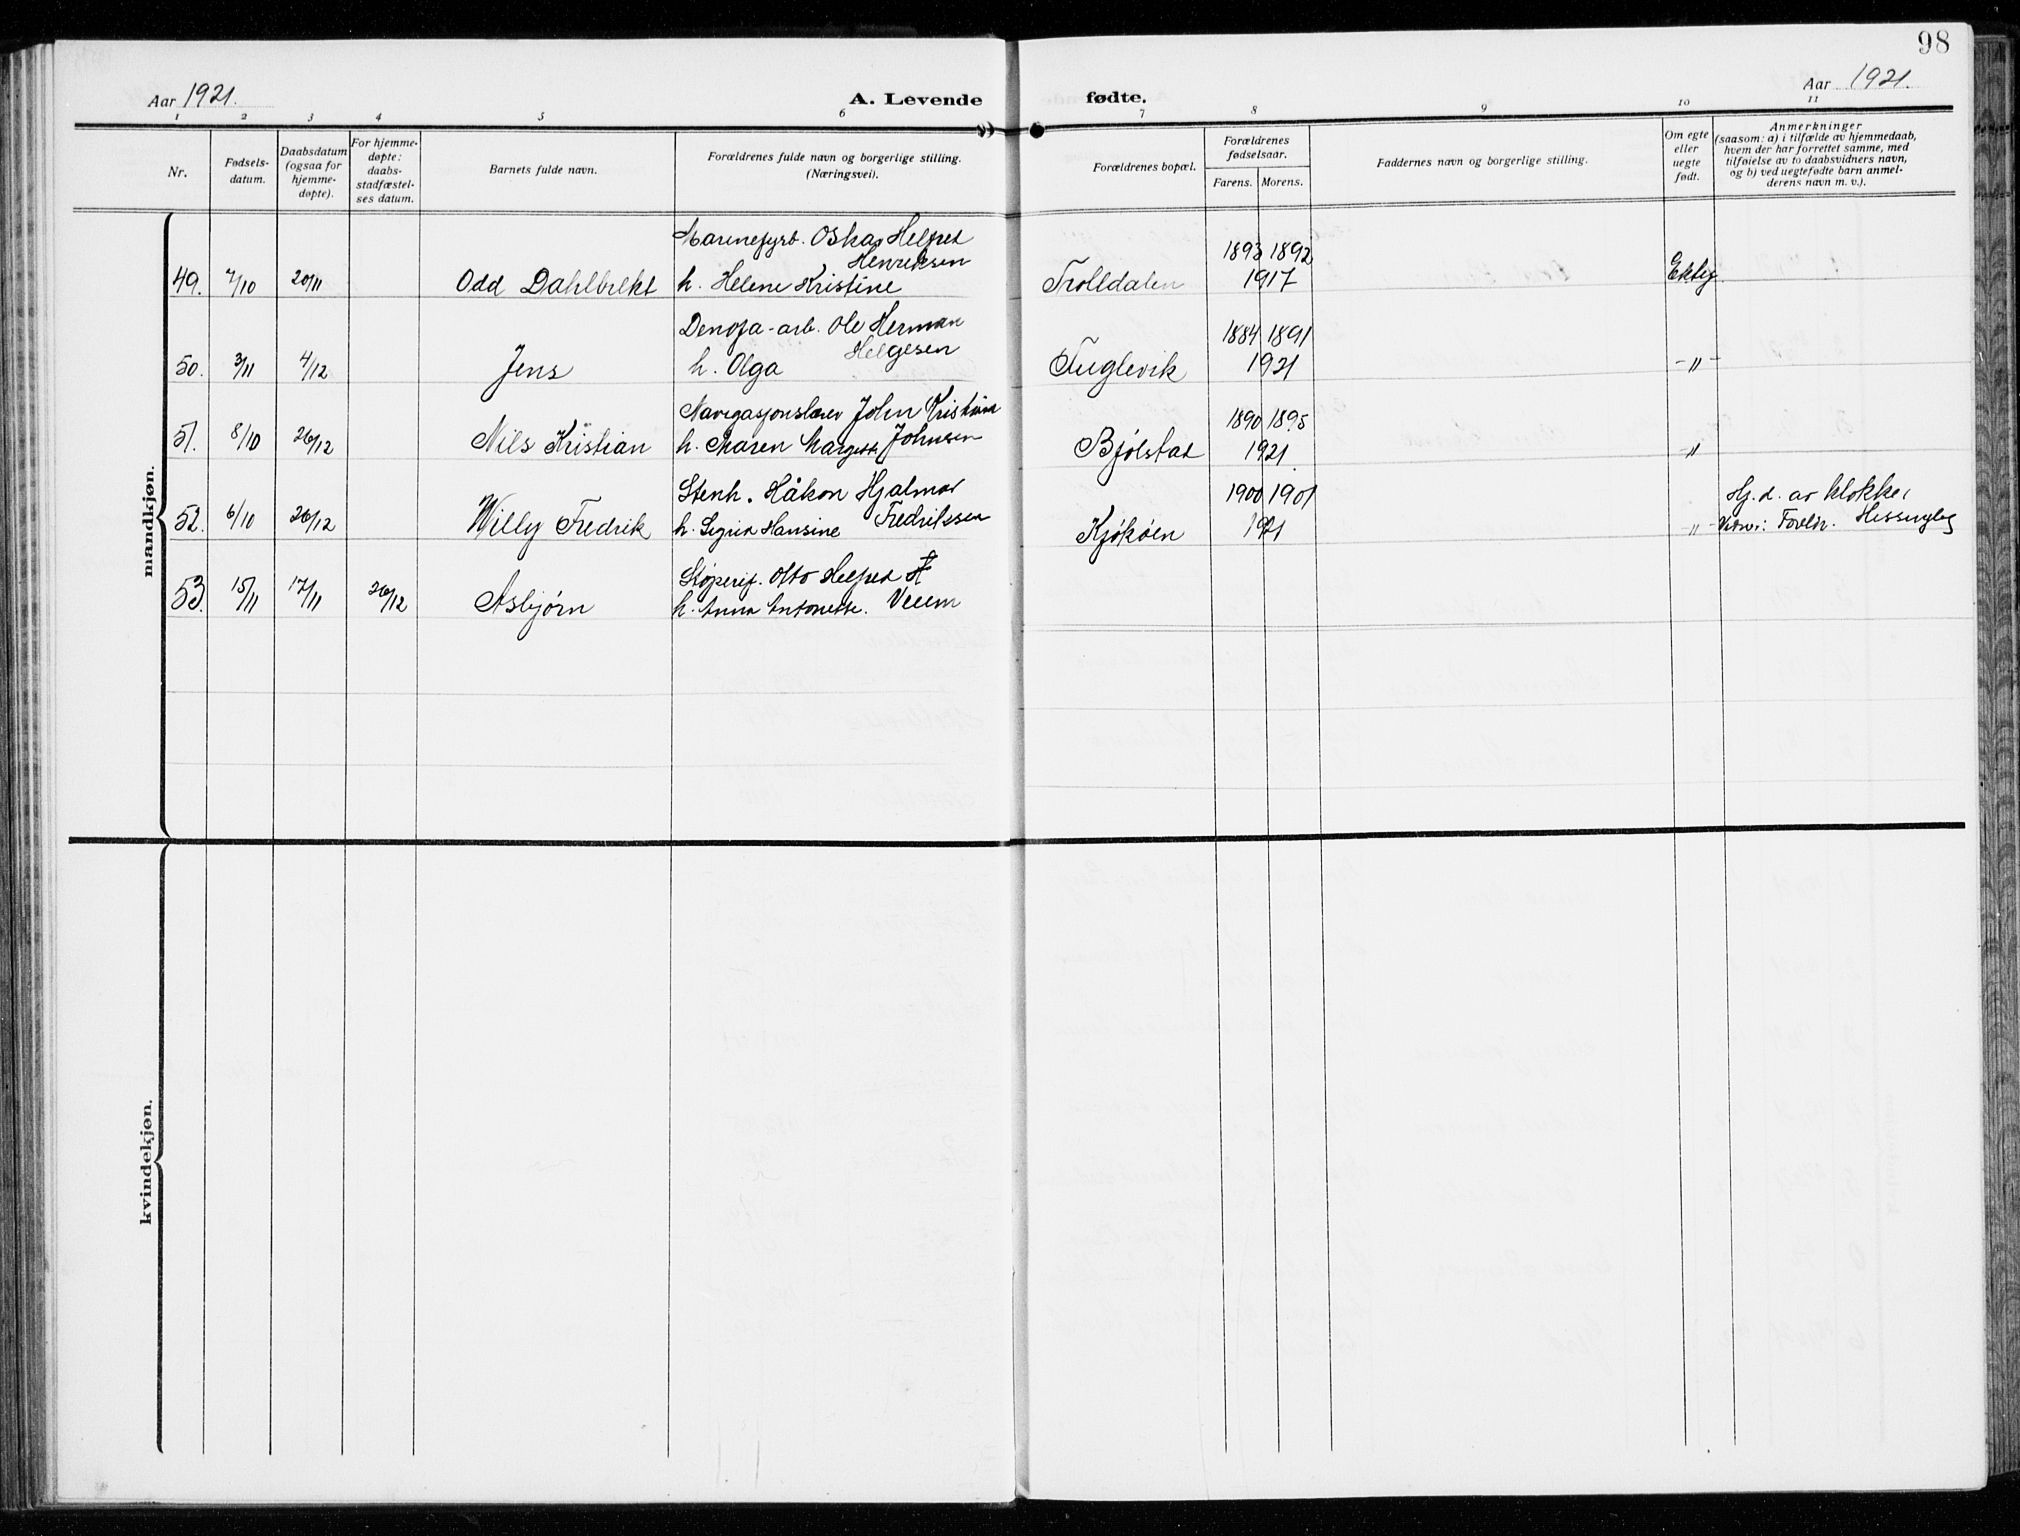 98
Aar 1921.
A. Levende fødte.
Aar 1921.
1 2 3 4 5 6 7 8 9 10 11
Nr.
Fødsels-
datum.
Daabsdatum
(ogsaa for
hjemme-
døpte).
For hjemme-
døpte:
daabs-
stadfæstel-
ses datum.
Barnets fulde navn.
Forældrenes fulde navn og borgerlige stilling.
(Næringsvei).
Forældrenes bopæl.
Forældrenes
fødselsaar.
Farens. Morens.
Faddernes navn og borgerlige stilling.
Om egte
eller
uegte
født.
Anmerkninger
(saasom: a) i tilfælde av hjemmedaab,
hvem der har forrettet samme, med
tilføielse av to daabsvidners navn,
og b) ved uegtefødte barn anmel-
derens navn m. v.).
mandkjøn.
Marinefyrb. Oskar Helfred
Henriksen 1893 1892
49. 7/10 20/11 Odd Dahlbrekt h. Helene Kristine Trolldalen 1917 Ekteg
Denofa-arb. Ole Herman 1884 1891
Helgesen
50. 3/11 4/12 Jens h. Olga Fuglevik 1921 -"-
Navigasjonslærer John Kristian 1890 1895
51. 8/10 26/12 Nils Kristian h. Maren Margethe Johnsen Bjølstad 1921. "
Stenh. Håkon Hjalmar 1900 1901 Hj. d. av klokker
52. 6/10 26/12 Willy Fredrik h. Sigrid Hansine Fredrikssen Kjøkøen 1921 " Vidner: Foreldr.
53. 15/11 17/11 26/12 Asbjørn Støperif. Otto Helfred
h. Anna Antonette. Veum
kvindekjøn.